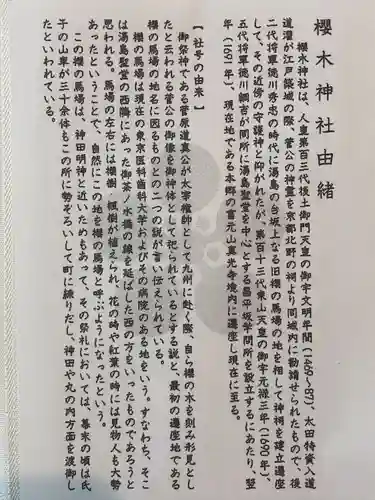 櫻木神社由緒
櫻木神社は、人皇第百三代後土御門天皇の御宇文明年間(1469〜87)、太田持資入道
道灌が江戸築城の際、菅公の神霊を京都北野の祠より同城内に勧請せられたもので、後
二代将軍徳川秀忠の時代に湯島の台坂上なる旧櫻の馬場の地を相して神祠を建立遷座
して、その近傍の守護神と仰がれたが、第百十三代東山天皇の御宇元禄三年(1690年)、
五代将軍徳川綱吉が同所に湯島聖堂を中心とする昌平坂学問所を設立するにあたり、翌
年(1691年)、現在地である本郷の富元山真光寺境内に遷座し現在に至る。
【社号の由来】
御祭神である菅原道真公が太宰権帥として九州に赴く際、自ら櫻の木を刻み形見とし
たと云われる菅公の御像を御神体として祀られているとする説と、最初の遷座地である
櫻の馬場の地名に因るものとの二つの説が言い伝えられている。
櫻の馬場は現在の東京医科歯科大学およびその病院のある地をいう。すなわち、そこ
は湯島聖堂の西隣にあった御茶ノ水橋の線を延ばした西の方をいったものであろうと
思われる。馬場の左右には櫻樹、楓樹が植えられ、花の時や紅葉の時には見物人も大勢
あったということで、自然にこの地を櫻の馬場と呼ぶようになったという。
この櫻の馬場は、神田明神と近いためもあって、その祭礼においては、幕末の頃は氏
子の山車が三十余体もこの所に勢ぞろいして町に練りだし、神田や丸の内方面を渡御し
たといわれている。